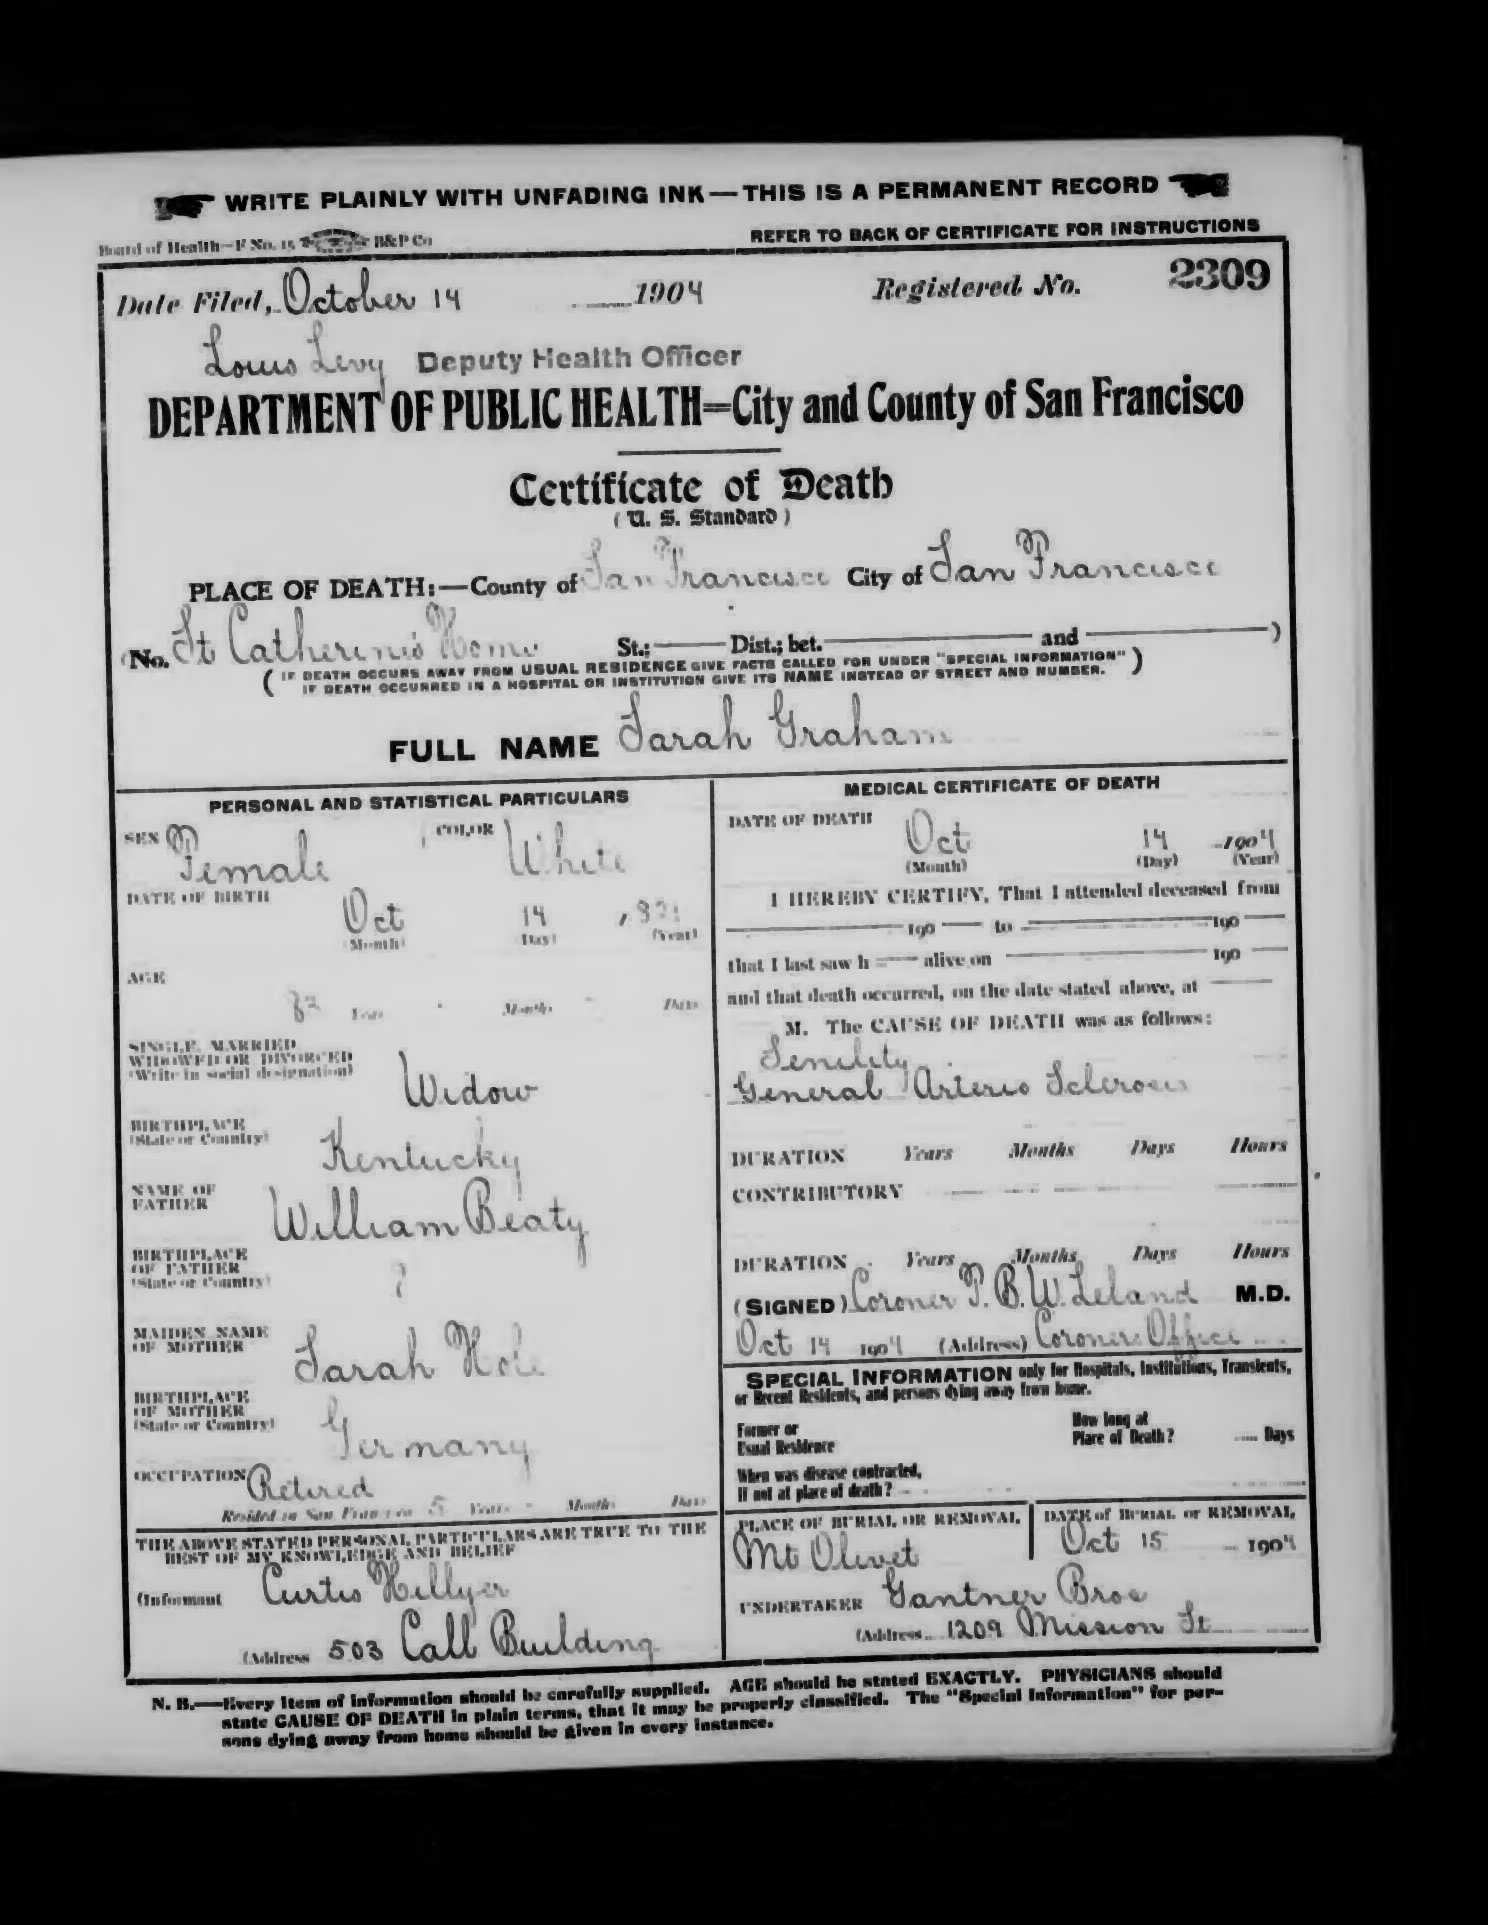 WRITE PLAINLY WITH UNFADING INK—THIS IS A PERMANENT RECORD
Board of Health—F No. 15 B&P Co
REFER TO BACK OF CERTIFICATE FOR INSTRUCTIONS
Date Filed, October 14 1904 Registered No. 2309
Louis Levy Deputy Health Officer
DEPARTMENT OF PUBLIC HEALTH=City and County of San Francisco
Certificate of Death
( U. S. Standard )
PLACE OF DEATH:—County of San Francisco City of San Francisco
(No. St Catherine's Home St.; Dist.; bet. and )
( IF DEATH OCCURS AWAY FROM USUAL RESIDENCE GIVE FACTS CALLED FOR UNDER "SPECIAL INFORMATION" )
IF DEATH OCCURRED IN A HOSPITAL OR INSTITUTION GIVE ITS NAME INSTEAD OF STREET AND NUMBER.
FULL NAME Sarah Graham
PERSONAL AND STATISTICAL PARTICULARS
SEX Female COLOR White
DATE OF BIRTH
Oct 14
(Month) (Day) (Year)
AGE
82 Years Months Days
SINGLE, MARRIED
WIDOWED OR DIVORCED
(Write in social designation)
Widow
BIRTHPLACE
(State or Country)
Kentucky
NAME OF
FATHER
William Beaty
BIRTHPLACE
OF FATHER
(State or Country)
?
MAIDEN NAME
OF MOTHER
Sarah Hole
BIRTHPLACE
OF MOTHER
(State or Country)
Germany
OCCUPATION Retired
Resided in San Francisco 5 Years Months Days
THE ABOVE STATED PERSONAL PARTICULARS ARE TRUE TO THE
BEST OF MY KNOWLEDGE AND BELIEF
(Informant Curtis Hillyer
(Address 503 Call Building
MEDICAL CERTIFICATE OF DEATH
DATE OF DEATH
Oct 14 1904
(Month) (Day) (Year)
I HEREBY CERTIFY, That I attended deceased from
190 to 190
that I last saw h alive on 190
and that death occurred, on the date stated above, at
M. The CAUSE OF DEATH was as follows:
Senility
General Arterio Sclerosis
DURATION Years Months Days Hours
CONTRIBUTORY
DURATION Years Months Days Hours
(SIGNED) Coroner T. B. W. Leland M.D.
Oct 14 1904 (Address) Coroners Office
SPECIAL INFORMATION only for Hospitals, Institutions, Transients,
or Recent Residents, and persons dying away from home.
Former or
Usual Residence
How long at
Place of Death? Days
When was disease contracted,
If not at place of death?
PLACE OF BURIAL OR REMOVAL
Mt Olivet
DATE of BURIAL or REMOVAL
Oct 15 1904
UNDERTAKER Gantner Bros
(Address 1209 Mission St
N. B.—Every item of information should be carefully supplied. AGE should be stated EXACTLY. PHYSICIANS should
state CAUSE OF DEATH in plain terms, that it may be properly classified. The "Special Information" for per-
sons dying away from home should be given in every instance.